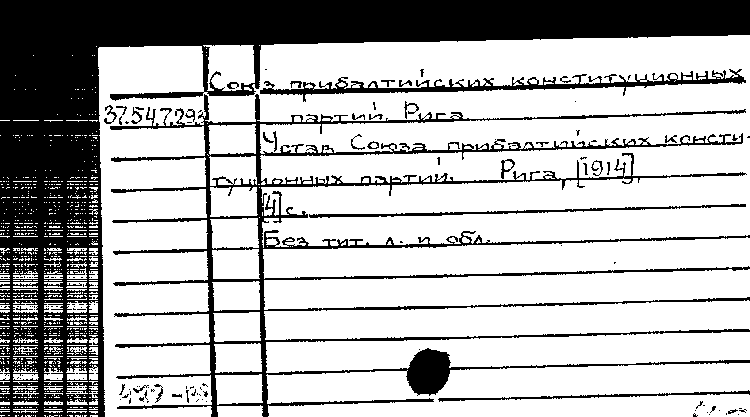 Союз прибалтийских конституционных
37.54.7.293 партий. Рига
Устав Союза прибалтийских консти-
туционных партий. Рига, [1914].
[4] с.
Без тит. л. и обл.